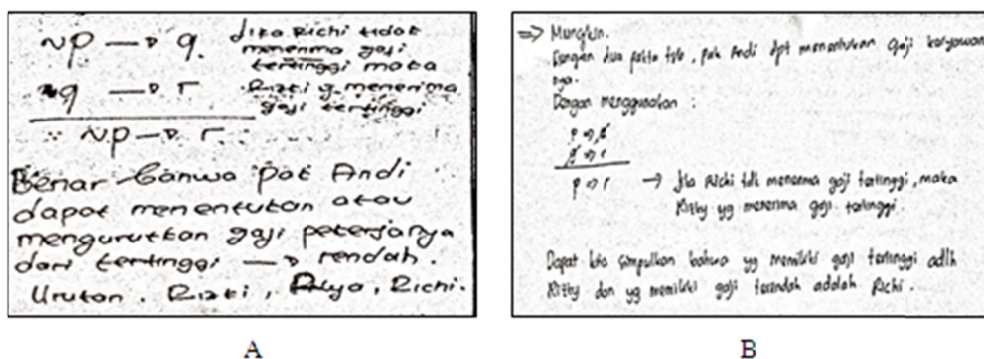 ~p → q. Jika Richi tidak
menerima gaji
tertinggi maka
~q → r Rizki yg menerima
gaji tertinggi
∴ ~p → r.
Benar bahwa pak Andi
dapat menentukan atau
mengurutkan gaji pekerjanya
dari tertinggi → rendah.
Urutan. Rizki, Alya, Richi.
A
=> Mungkin.
Dengan dua fakta tsb, pak Andi dpt menentukan gaji karyawan
nya.
Dengan menggunakan :
p => q
q => r
p => r → jika Richi tdk menerima gaji tertinggi, maka
yg menerima gaji tertinggi.
Dapat kita simpulkan bahwa yg memiliki gaji tertinggi adlh
dan yg memiliki gaji terendah adalah Richi.
B